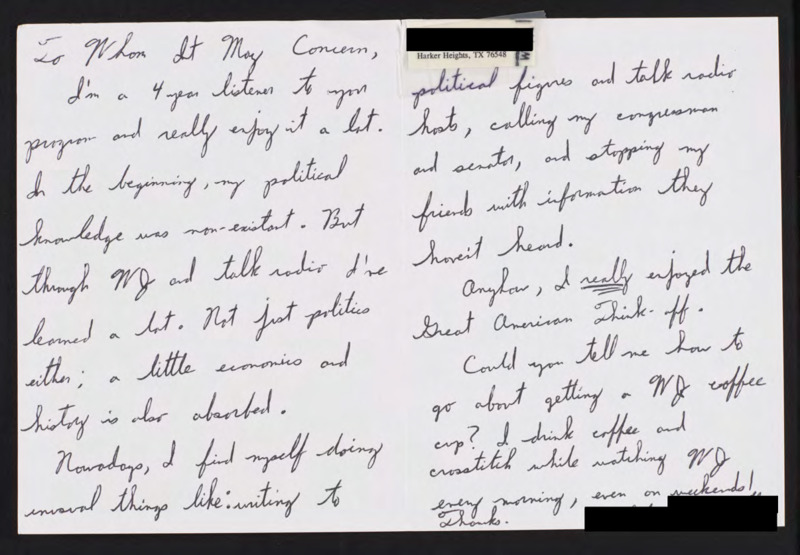 To Whom It May Concern,
I'm a 4 year listener to your
program and really enjoy it a lot.
In the beginning, my political
knowledge was non-existant. But
through WJ and talk radio I've
learned a lot. Not just politics
either; a little economics and
history is also absorbed.
Nowadays, I find myself doing
unusual things like: writing to
Harker Heights, TX 76548
political figures and talk radio
hosts, calling my congressman
and senator, and stopping my
friends with information they
haven't heard.
Anyhow, I really enjoyed the
Great American Think-off.
Could you tell me how to
go about getting a WJ coffee
cup? I drink coffee and
crosstitch while watching WJ
every morning, even on weekends!
Thanks.